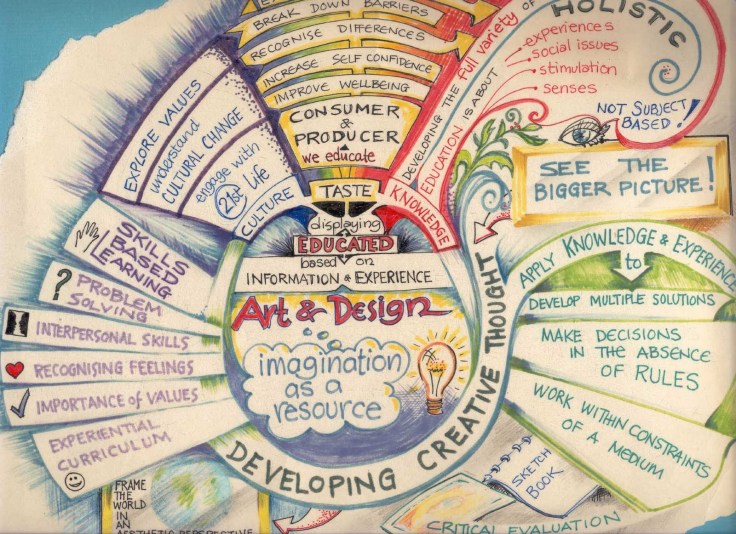 BREAK DOWN BARRIERS
RECOGNISE DIFFERENCES
INCREASE SELF CONFIDENCE
IMPROVE WELLBEING
CONSUMER
&
PRODUCER
we educate
TASTE
displaying
EDUCATED
based on
INFORMATION & EXPERIENCE
Art & Design
imagination
as a
resource
EXPLORE VALUES
understand
CULTURAL CHANGE
engage with
21st Life
CULTURE
SKILLS
BASED
LEARNING
?
PROBLEM
SOLVING
INTERPERSONAL SKILLS
RECOGNISING FEELINGS
IMPORTANCE of VALUES
EXPERIENTIAL
CURRICULUM
FRAME
THE
WORLD
IN
AN
AESTHETIC PERSPECTIVE
KNOWLEDGE
DEVELOPING THE full variety OF
EDUCATION IS ABOUT
HOLISTIC
experiences
social issues
stimulation
senses
NOT SUBJECT
BASED!
SEE THE
BIGGER PICTURE!
DEVELOPING CREATIVE THOUGHT
APPLY KNOWLEDGE & EXPERIENCE
to
DEVELOP MULTIPLE SOLUTIONS
MAKE DECISIONS
IN THE ABSENCE
OF RULES
WORK WITHIN CONSTRAINTS
OF A MEDIUM
SKETCH
BOOK
CRITICAL EVALUATION